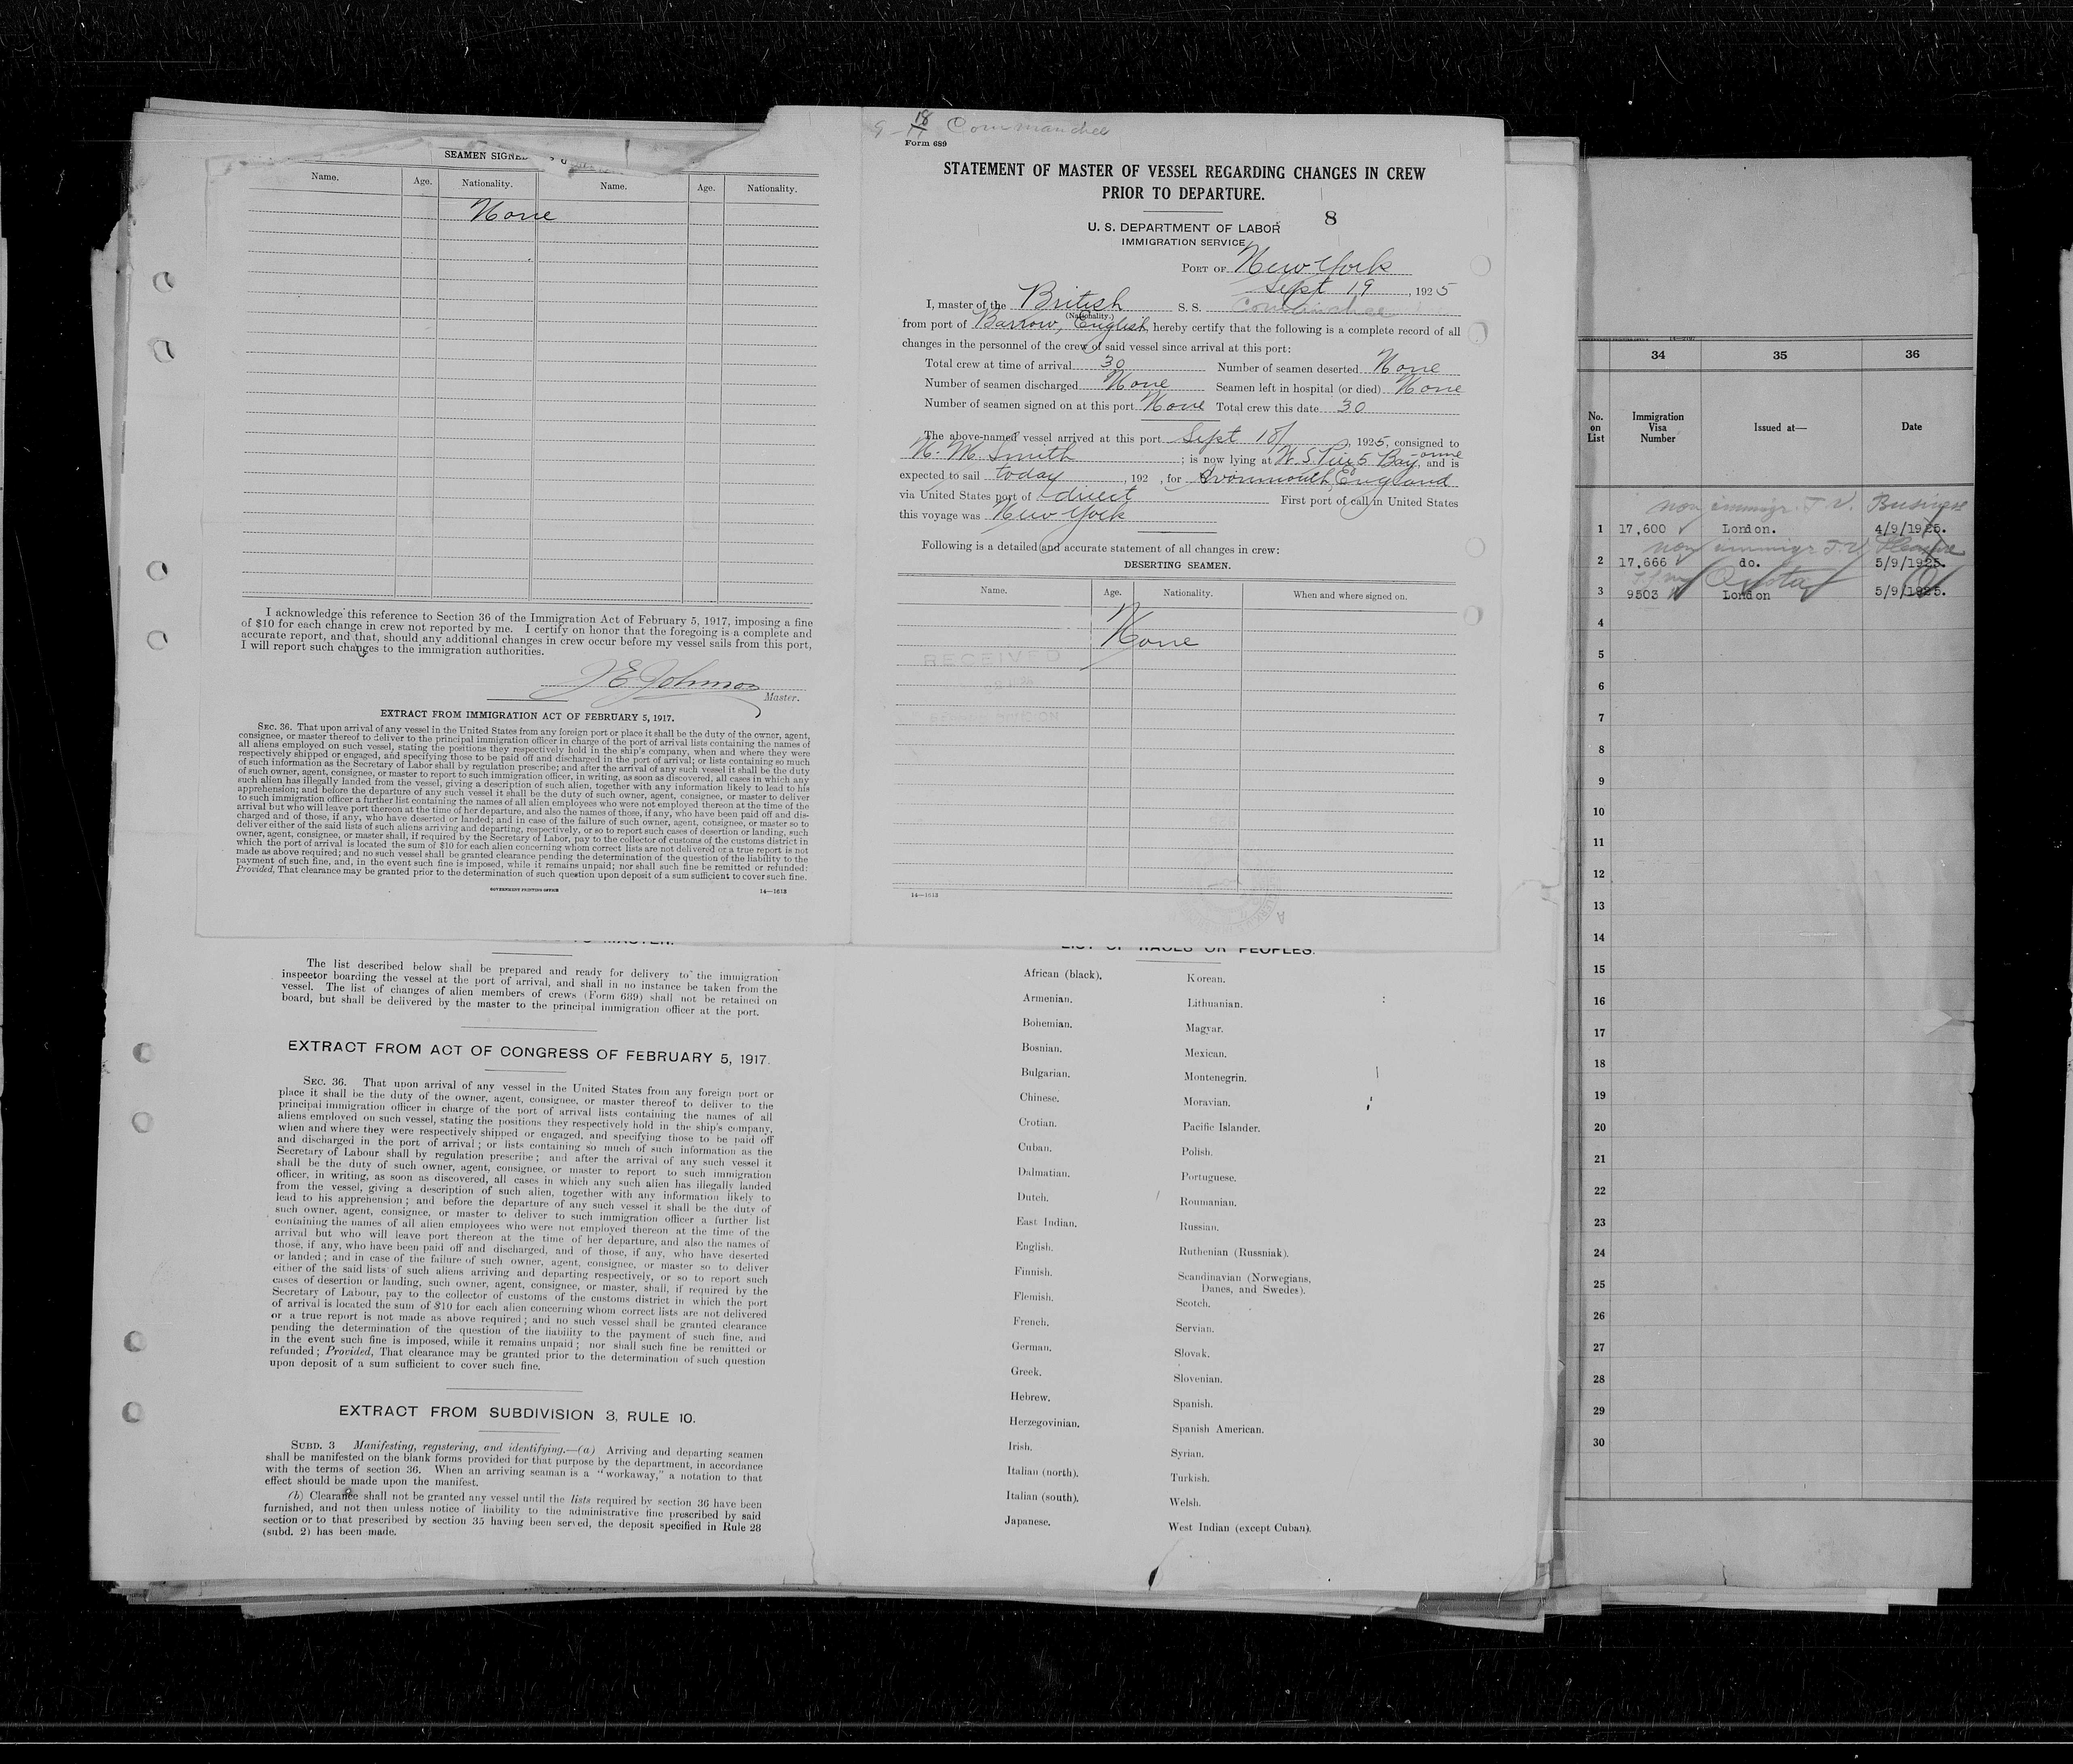 SEAMEN SIGNED
Name. Age. Nationality. Name. Age. Nationality.
None
I acknowledge this reference to Section 36 of the Immigration Act of February 5, 1917, imposing a fine
of $10 for each change in crew not reported by me. I certify on honor that the foregoing is a complete and
accurate report, and that, should any additional changes in crew occur before my vessel sails from this port,
I will report such changes to the immigration authorities.
J E Johnson
Master.
EXTRACT FROM IMMIGRATION ACT OF FEBRUARY 5, 1917.
SEC. 36. That upon arrival of any vessel in the United States from any foreign port or place it shall be the duty of the owner, agent,
consignee, or master thereof to deliver to the principal immigration officer in charge of the port of arrival lists containing the names of
all aliens employed on such vessel, stating the positions they respectively hold in the ship's company, when and where they were
respectively shipped or engaged, and specifying those to be paid off and discharged in the port of arrival; or lists containing so much
of such information as the Secretary of Labor shall by regulation prescribe; and after the arrival of any such vessel it shall be the duty
of such owner, agent, consignee, or master to report to such immigration officer, in writing, as soon as discovered, all cases in which any
such alien has illegally landed from the vessel, giving a description of such alien, together with any information likely to lead to his
apprehension; and before the departure of any such vessel it shall be the duty of such owner, agent, consignee, or master to deliver
to such immigration officer a further list containing the names of all alien employees who were not employed thereon at the time of the
arrival but who will leave port thereon at the time of her departure, and also the names of those, if any, who have been paid off and dis-
charged and of those, if any, who have deserted or landed; and in case of the failure of such owner, agent, consignee, or master so to
deliver either of the said lists of such aliens arriving and departing, respectively, or so to report such cases of desertion or landing, such
owner, agent, consignee, or master, shall, if required by the Secretary of Labor, pay to the collector of customs of the customs district in
which the port of arrival is located the sum of $10 for each alien concerning whom correct lists are not delivered or a true report is not
made as above required; and no such vessel shall be granted clearance pending the determination of the question of the liability to the
payment of such fine, and, in the event such fine is imposed, while it remains unpaid; nor shall such fine be remitted or refunded:
Provided, That clearance may be granted prior to the determination of such question upon deposit of a sum sufficient to cover such fine.
GOVERNMENT PRINTING OFFICE 14—1613
18 Commanchee
Form 689
STATEMENT OF MASTER OF VESSEL REGARDING CHANGES IN CREW
PRIOR TO DEPARTURE.
8
U. S. DEPARTMENT OF LABOR
IMMIGRATION SERVICE
PORT OF New York
Sept 19, 1925
I, master of the British S. S. Comanchee
(Nationality.)
from port of Barrow, English, hereby certify that the following is a complete record of all
changes in the personnel of the crew of said vessel since arrival at this port:
Total crew at time of arrival 30 Number of seamen deserted None
Number of seamen discharged None Seamen left in hospital (or died) None
Number of seamen signed on at this port None Total crew this date 30
The above-named vessel arrived at this port Sept 18/, 1925, consigned to
N. M. Smith; is now lying at W. S. Pier 5 Bay-onne, and is
expected to sail today, 192 , for Avonmouth, England
via United States port of direct First port of call in United States
this voyage was New York
Following is a detailed and accurate statement of all changes in crew:
DESERTING SEAMEN.
Name. Age. Nationality. When and where signed on.
None
RECEIVED
14—1613
TO MASTER.
The list described below shall be prepared and ready for delivery to the immigration
inspector boarding the vessel at the port of arrival, and shall in no instance be taken from the
vessel. The list of changes of alien members of crews (Form 689) shall not be retained on
board, but shall be delivered by the master to the principal immigration officer at the port.
EXTRACT FROM ACT OF CONGRESS OF FEBRUARY 5, 1917.
SEC. 36. That upon arrival of any vessel in the United States from any foreign port or
place it shall be the duty of the owner, agent, consignee, or master thereof to deliver to the
principal immigration officer in charge of the port of arrival lists containing the names of all
aliens employed on such vessel, stating the positions they respectively hold in the ship's company,
when and where they were respectively shipped or engaged, and specifying those to be paid off
and discharged in the port of arrival; or lists containing so much of such information as the
Secretary of Labour shall by regulation prescribe; and after the arrival of any such vessel it
shall be the duty of such owner, agent, consignee, or master to report to such immigration
officer, in writing, as soon as discovered, all cases in which any such alien has illegally landed
from the vessel, giving a description of such alien, together with any information likely to
lead to his apprehension; and before the departure of any such vessel it shall be the duty of
such owner, agent, consignee, or master to deliver to such immigration officer a further list
containing the names of all alien employees who were not employed thereon at the time of the
arrival but who will leave port thereon at the time of her departure, and also the names of
those, if any, who have been paid off and discharged, and of those, if any, who have deserted
or landed; and in case of the failure of such owner, agent, consignee, or master so to deliver
either of the said lists of such aliens arriving and departing respectively, or so to report such
cases of desertion or landing, such owner, agent, consignee, or master, shall, if required by the
Secretary of Labour, pay to the collector of customs of the customs district in which the port
of arrival is located the sum of $10 for each alien concerning whom correct lists are not delivered
or a true report is not made as above required; and no such vessel shall be granted clearance
pending the determination of the question of the liability to the payment of such fine, and
in the event such fine is imposed, while it remains unpaid; nor shall such fine be remitted or
refunded; Provided, That clearance may be granted prior to the determination of such question
upon deposit of a sum sufficient to cover such fine.
EXTRACT FROM SUBDIVISION 3, RULE 10.
SUBD. 3 Manifesting, registering, and identifying.—(a) Arriving and departing seamen
shall be manifested on the blank forms provided for that purpose by the department, in accordance
with the terms of section 36. When an arriving seaman is a "workaway," a notation to that
effect should be made upon the manifest.
(b) Clearance shall not be granted any vessel until the lists required by section 36 have been
furnished, and not then unless notice of liability to the administrative fine prescribed by said
section or to that prescribed by section 35 having been served, the deposit specified in Rule 28
(subd. 2) has been made.
LIST OF RACES OR PEOPLES.
African (black). Korean.
Armenian. Lithuanian.
Bohemian. Magyar.
Bosnian. Mexican.
Bulgarian. Montenegrin.
Chinese. Moravian.
Crotian. Pacific Islander.
Cuban. Polish.
Dalmatian. Portuguese.
Dutch. Roumanian.
East Indian. Russian.
English. Ruthenian (Russniak).
Finnish. Scandinavian (Norwegians,
Danes, and Swedes).
Flemish. Scotch.
French. Servian.
German. Slovak.
Greek. Slovenian.
Hebrew. Spanish.
Herzegovinian. Spanish American.
Irish. Syrian.
Italian (north). Turkish.
Italian (south). Welsh.
Japanese. West Indian (except Cuban).
34 35 36
No. on List Immigration Visa Number Issued at— Date
non immigr. T. V. Business
1 17,600 London. 4/9/1925.
non immigr T.V. Pleasure
2 17,666 do. 5/9/1925.
Quota
3 9503 London 5/9/1925.
4
5
6
7
8
9
10
11
12
13
14
15
16
17
18
19
20
21
22
23
24
25
26
27
28
29
30